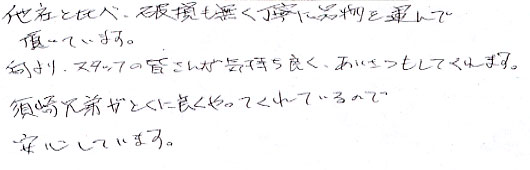 他社と比べ、破損も無く丁寧に荷物を運んで
頂いています。
何より、スタッフの皆さんが気持ち良く、あいさつもしてくれます。
須崎兄弟がとくに良くやってくれているので
安心しています。